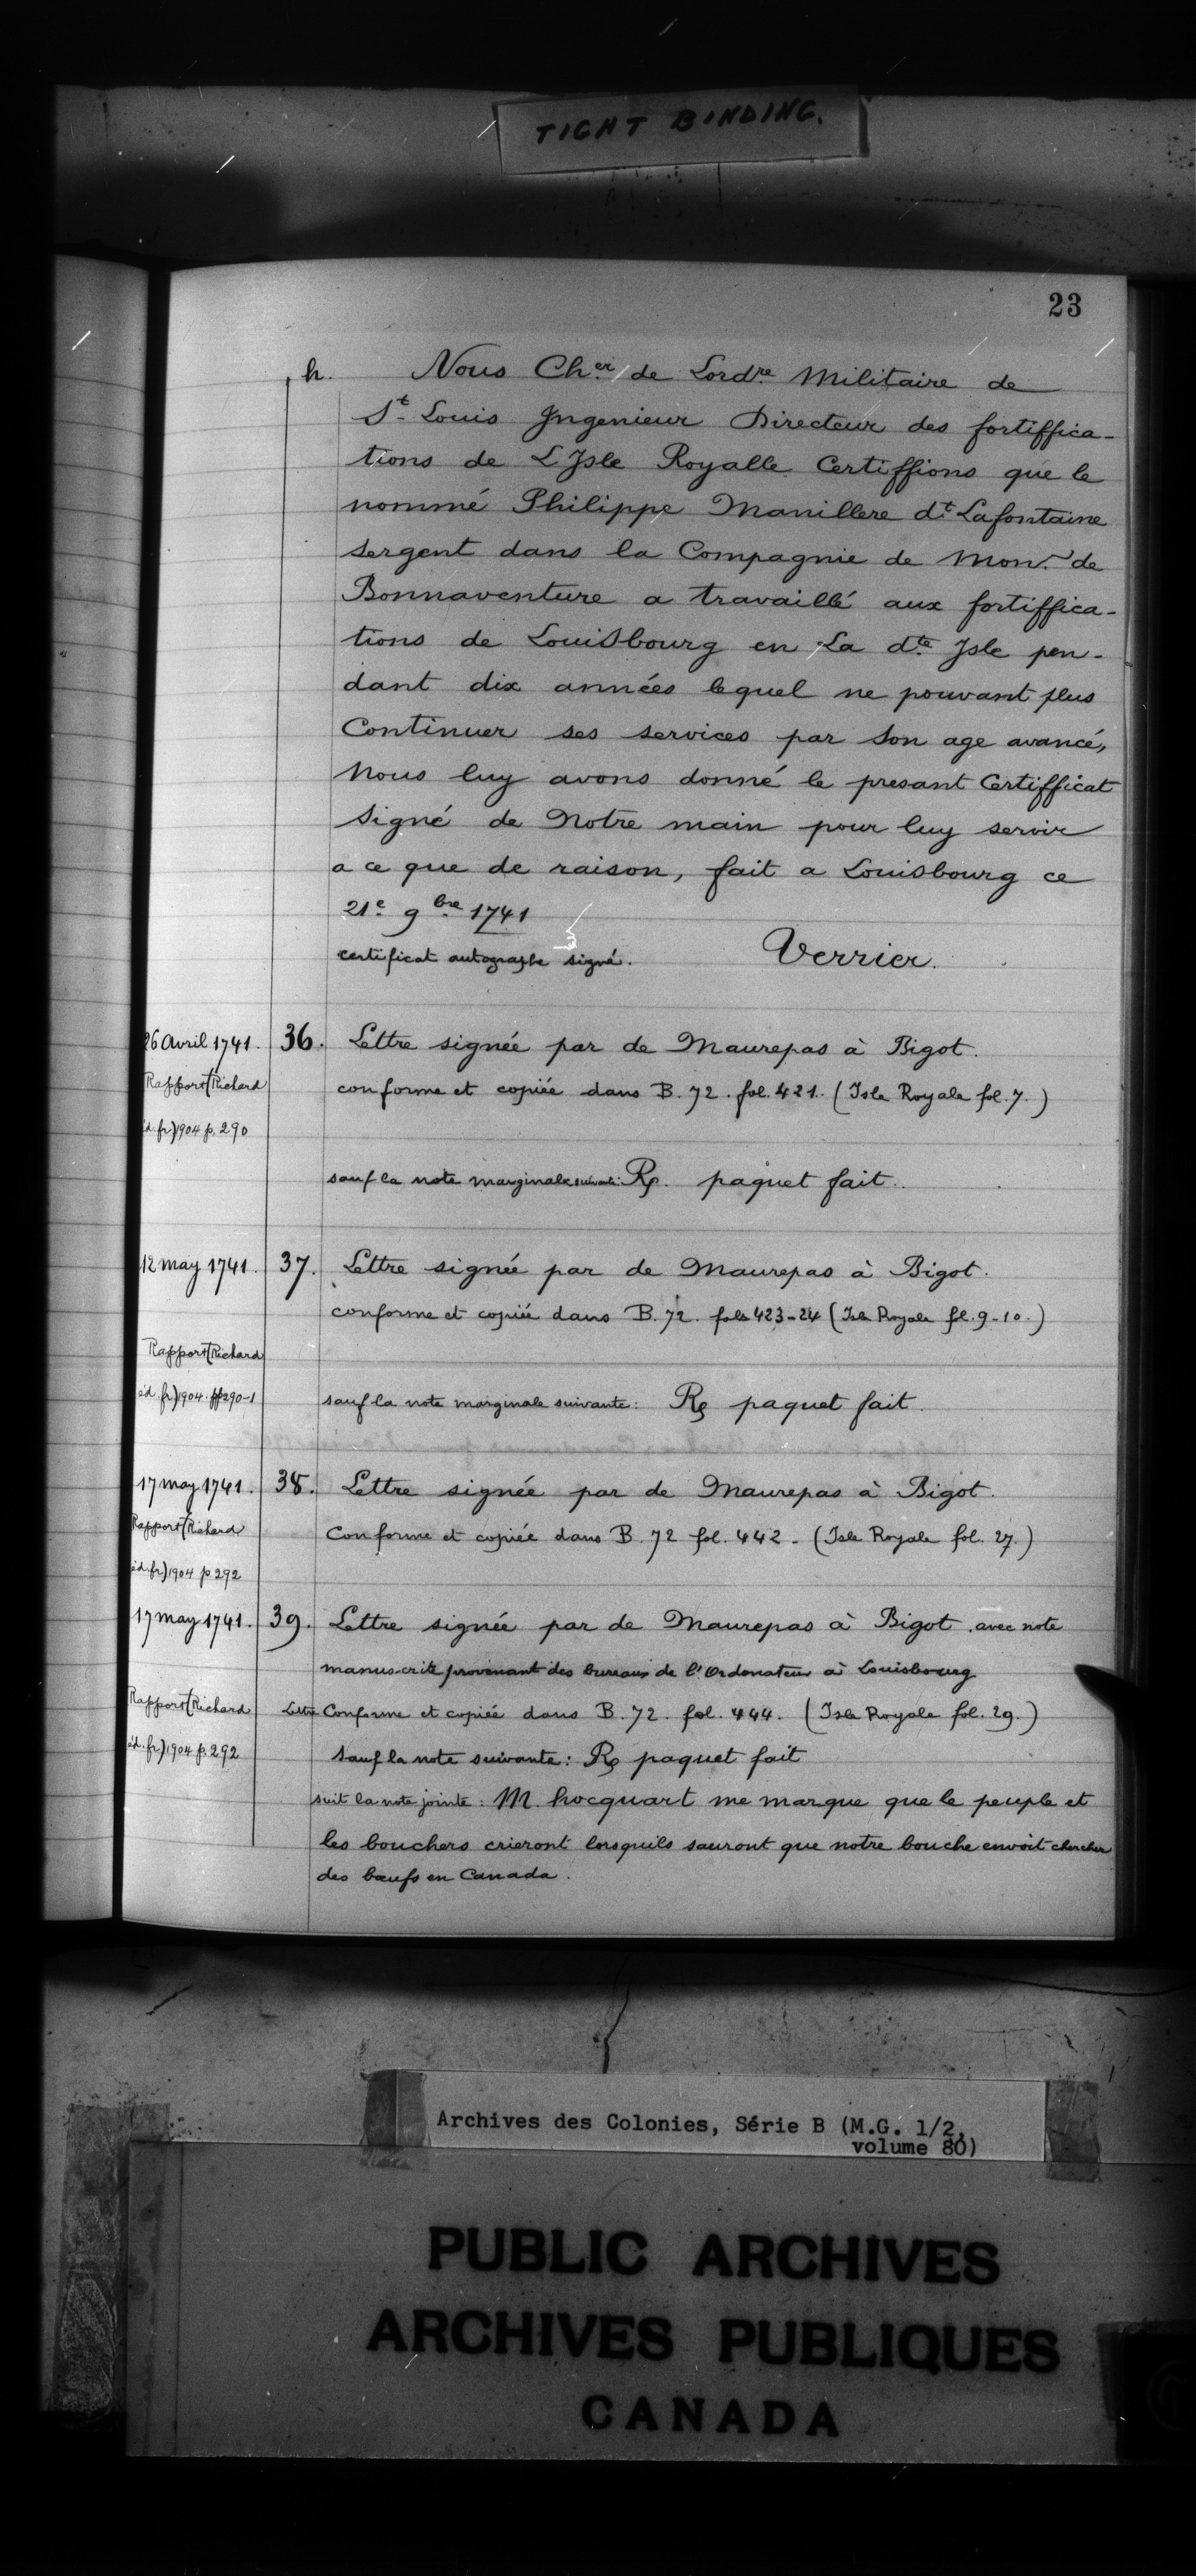 TIGHT BINDING.
23
h. Nous Cher de Lordre Militaire de
St Louis Ingenieur Directeur des fortiffica-
tions de L'Isle Royalle Certiffions que le
nommé Philippe Manillere dt Lafontaine
sergent dans la Compagnie de Monr. de
Bonnaventure a travaillé aux fortiffica-
tions de Louisbourg en La dte Isle pen-
dant dix années lequel ne pouvant plus
Continuer ses services par son age avancé,
Nous luy avons donné le presant Certifficat
Signé de Notre main pour luy servir
a ce que de raison, fait a Louisbourg ce
21e 9bre 1741
certificat autographe signé. Verrier.
26 Avril 1741. 36. Lettre signée par de Maurepas à Bigot.
Rapport (Richard conforme et copiée dans B. 72. fol. 421. (Isle Royale fol. 7.)
éd. fr) 1904 p. 290
sauf la note marginale suivante: Rp. paquet fait.
12 may 1741. 37. Lettre signée par de Maurepas à Bigot.
conforme et copiée dans B. 72. fols 423-24 (Isle Royale fol. 9-10.)
Rapport (Richard
éd. fr) 1904. pp 290-1 sauf la note marginale suivante: Rp paquet fait.
17 may 1741. 38. Lettre signée par de Maurepas à Bigot.
Rapport (Richard Conforme et copiée dans B. 72 fol. 442 - (Isle Royale fol. 27.)
éd. fr) 1904 p 292
17 may 1741. 39. Lettre signée par de Maurepas à Bigot. avec note
manuscrite provenant des bureaux de l'Ordonateur à Louisbourg
Rapport (Richard Lettre Conforme et copiée dans B. 72. fol. 444. (Isle Royale fol. 29.)
éd. fr) 1904 p. 292 Sauf la note suivante: Rp paquet fait
suit la note jointe: M. hocquart me marque que le peuple et
les bouchers crieront lorsquils sauront que notre bouche envoit chercher
des bœufs en Canada.
Archives des Colonies, Série B (M.G. 1/2,
volume 80)
PUBLIC ARCHIVES
ARCHIVES PUBLIQUES
CANADA